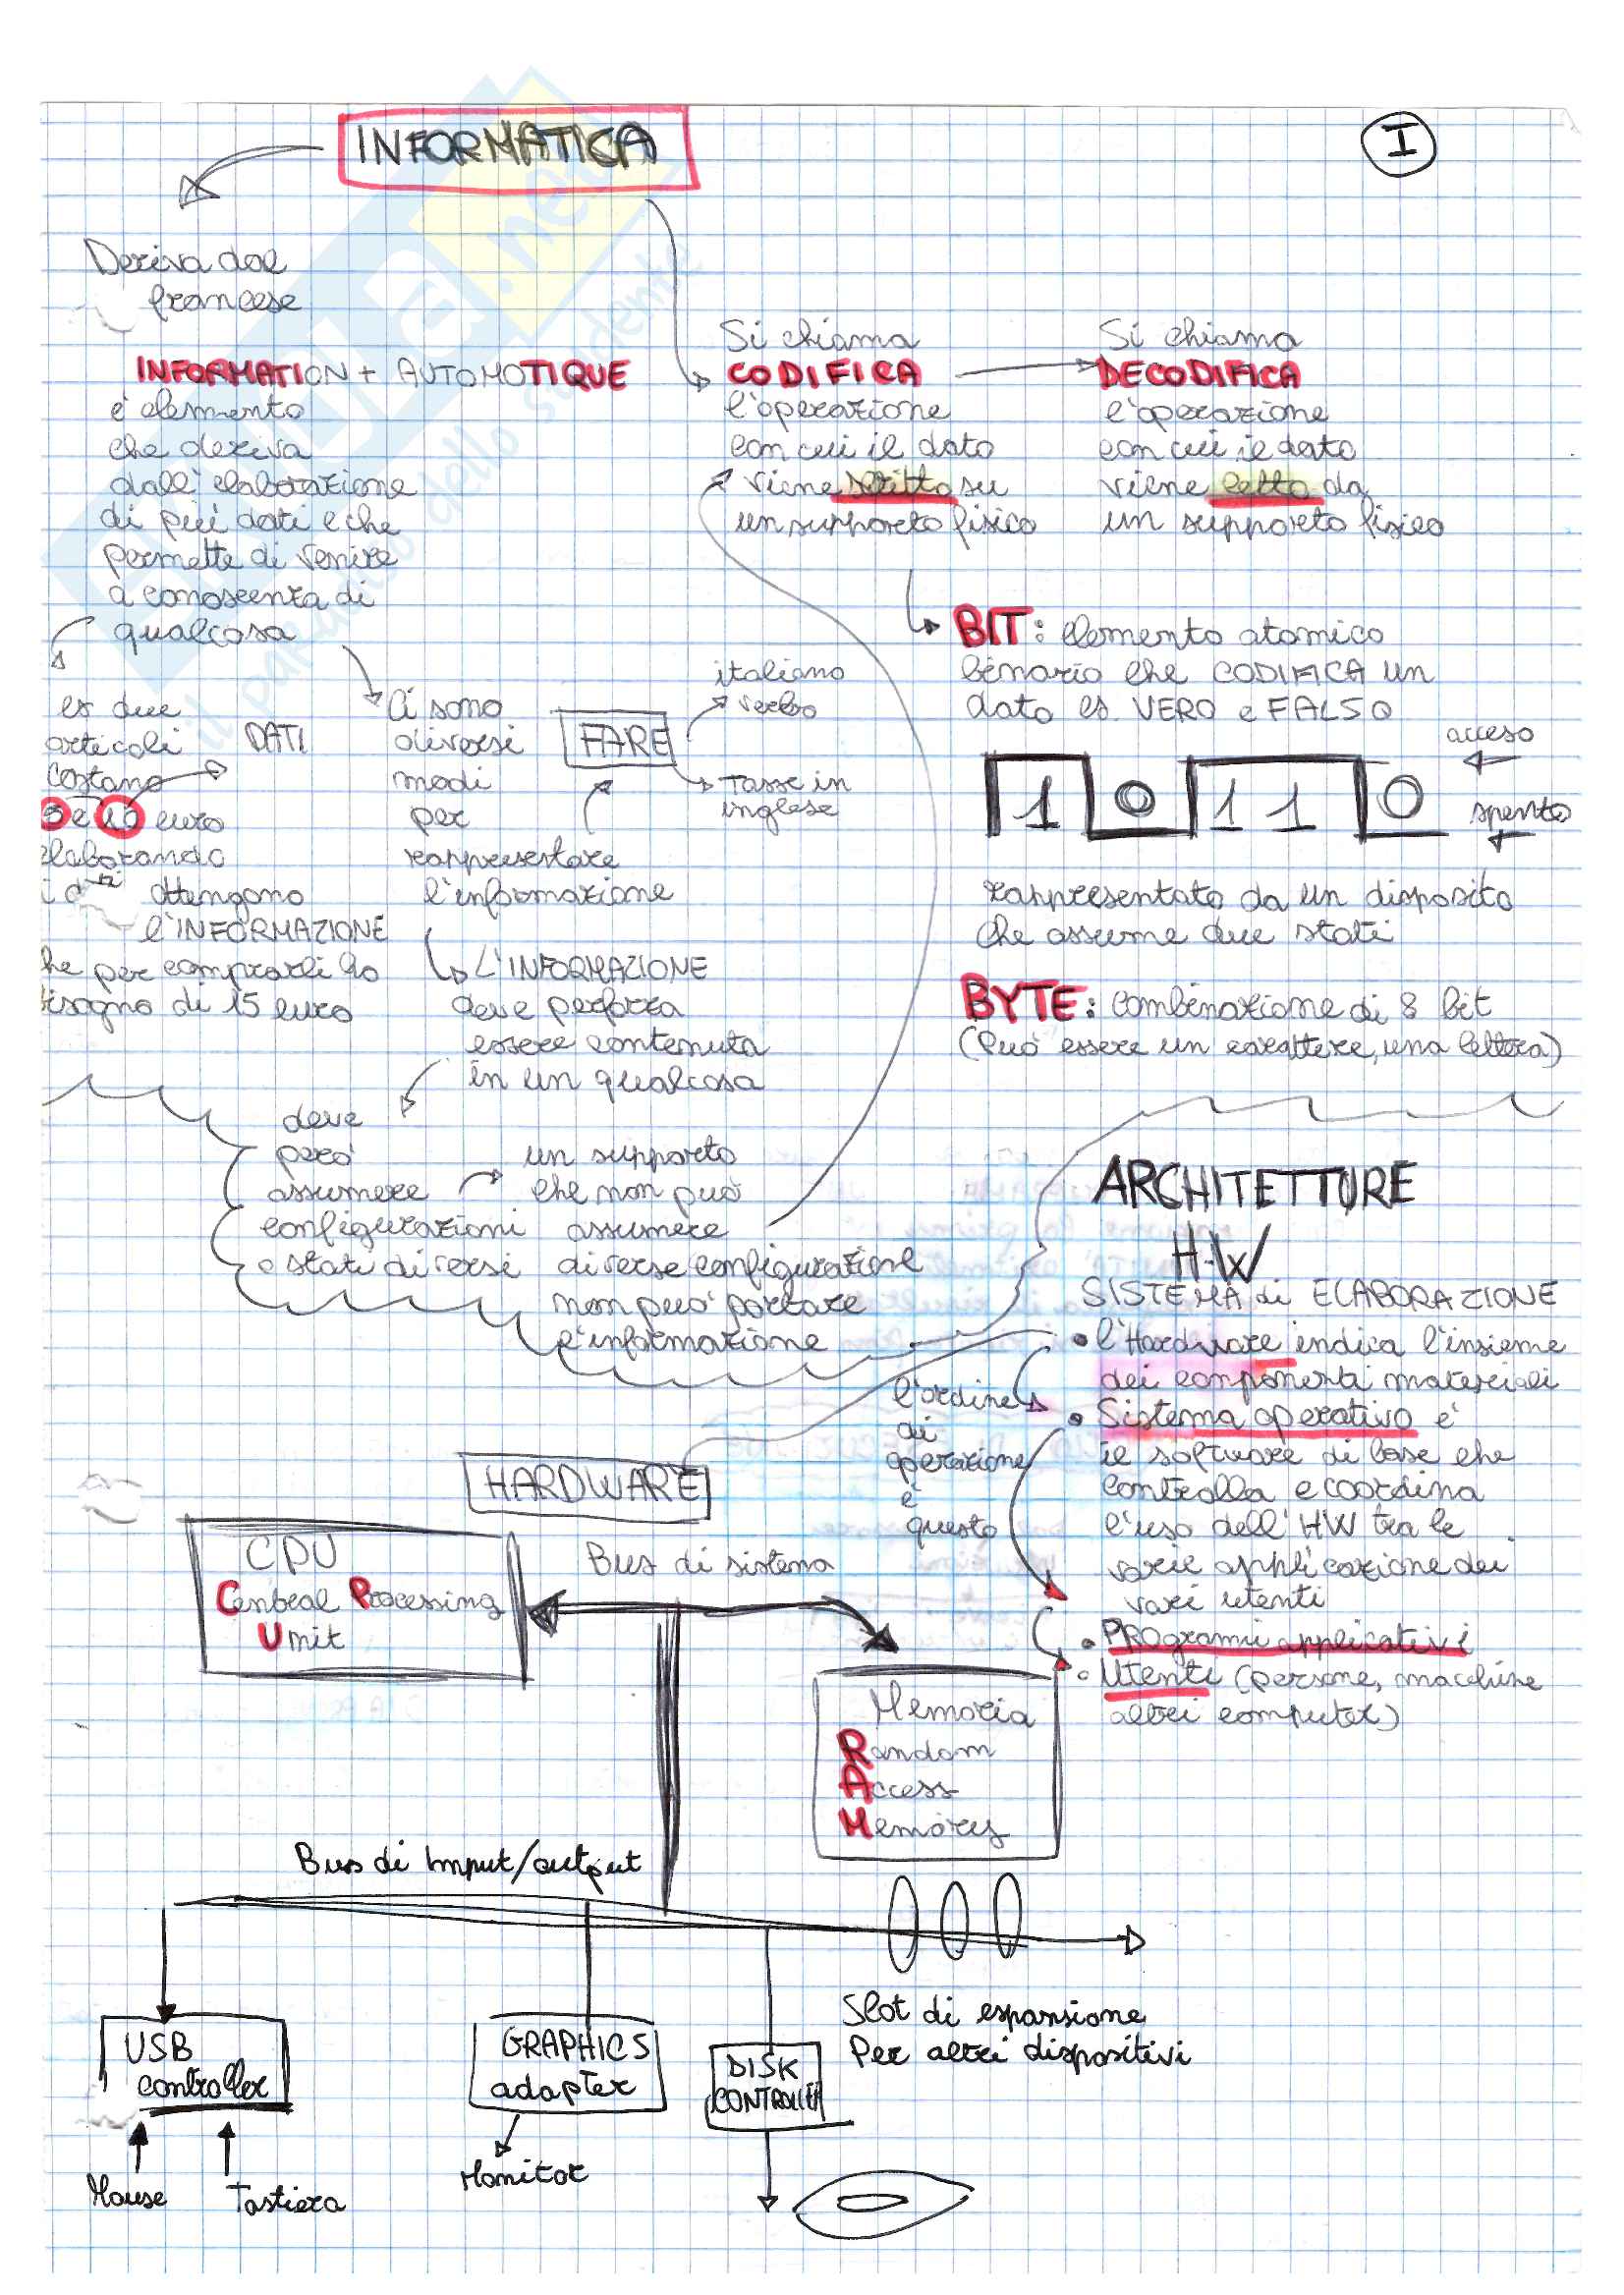 INFORMATICA
I
Deriva dal
francese
INFORMATION + AUTOMOTIQUE
è elemento
che deriva
dall'elaborazione
di più dati e che
permette di venire
a conoscenza di
qualcosa
es due
articoli
costano
5 e 10 euro
elaborando
i dati ottengono
l'INFORMAZIONE
che per comprarli ho
bisogno di 15 euro
DATI
Ci sono
diversi
modi
per
rappresentare
l'informazione
FARE
italiano
verbo
Tasse in
inglese
L'INFORMAZIONE
deve perforza
essere contenuta
in un qualcosa
deve
però
assumere
configurazioni
o stati diversi
un supporto
che non può
assumere
diverse configurazione
non può portare
l'informazione
Si chiama
CODIFICA
l'operazione
con cui il dato
viene scritto su
un supporto fisico
Si chiama
DECODIFICA
l'operazione
con cui il dato
viene letto da
un supporto fisico
BIT: elemento atomico
binario che CODIFICA un
dato es. VERO e FALSO
acceso
1 0 1 1 0
spento
rappresentato da un disposito
che assume due stati
BYTE: combinazione di 8 bit
(può essere un carattere, una lettera)
ARCHITETTURE
H-W
SISTEMA di ELABORAZIONE
• l'Hardware indica l'insieme
dei componenti materiali
• Sistema operativo è
il software di base che
controlla e coordina
l'uso dell'HW tra le
varie applicazione dei
vari utenti
• PROgrami applicativi
• Utenti (persone, macchine
altri computer)
l'ordine
di
operazione
è
questo
HARDWARE
CPU
Central Processing
Unit
Bus di sistema
Memoria
Random
Access
Memory
Bus di Imput/output
USB
controller
GRAPHICS
adapter
DISK
CONTROLLER
Slot di espansione
Per altri dispositivi
Mouse
Tastiera
Monitor
il paradiso dello studente